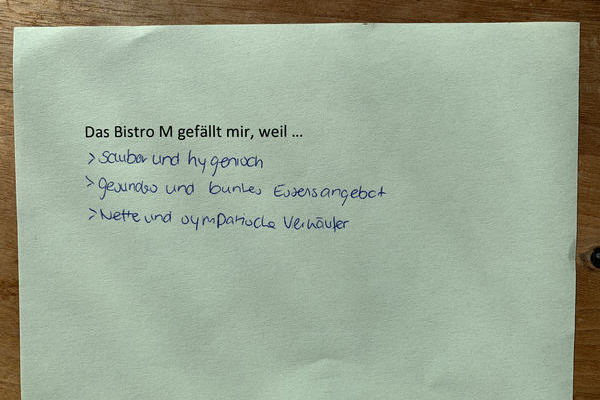 Das Bistro M gefällt mir, weil ...
> sauber und hygenisch
> gesundes und buntes Essensangebot
> Nette und sympatische Verkäufer